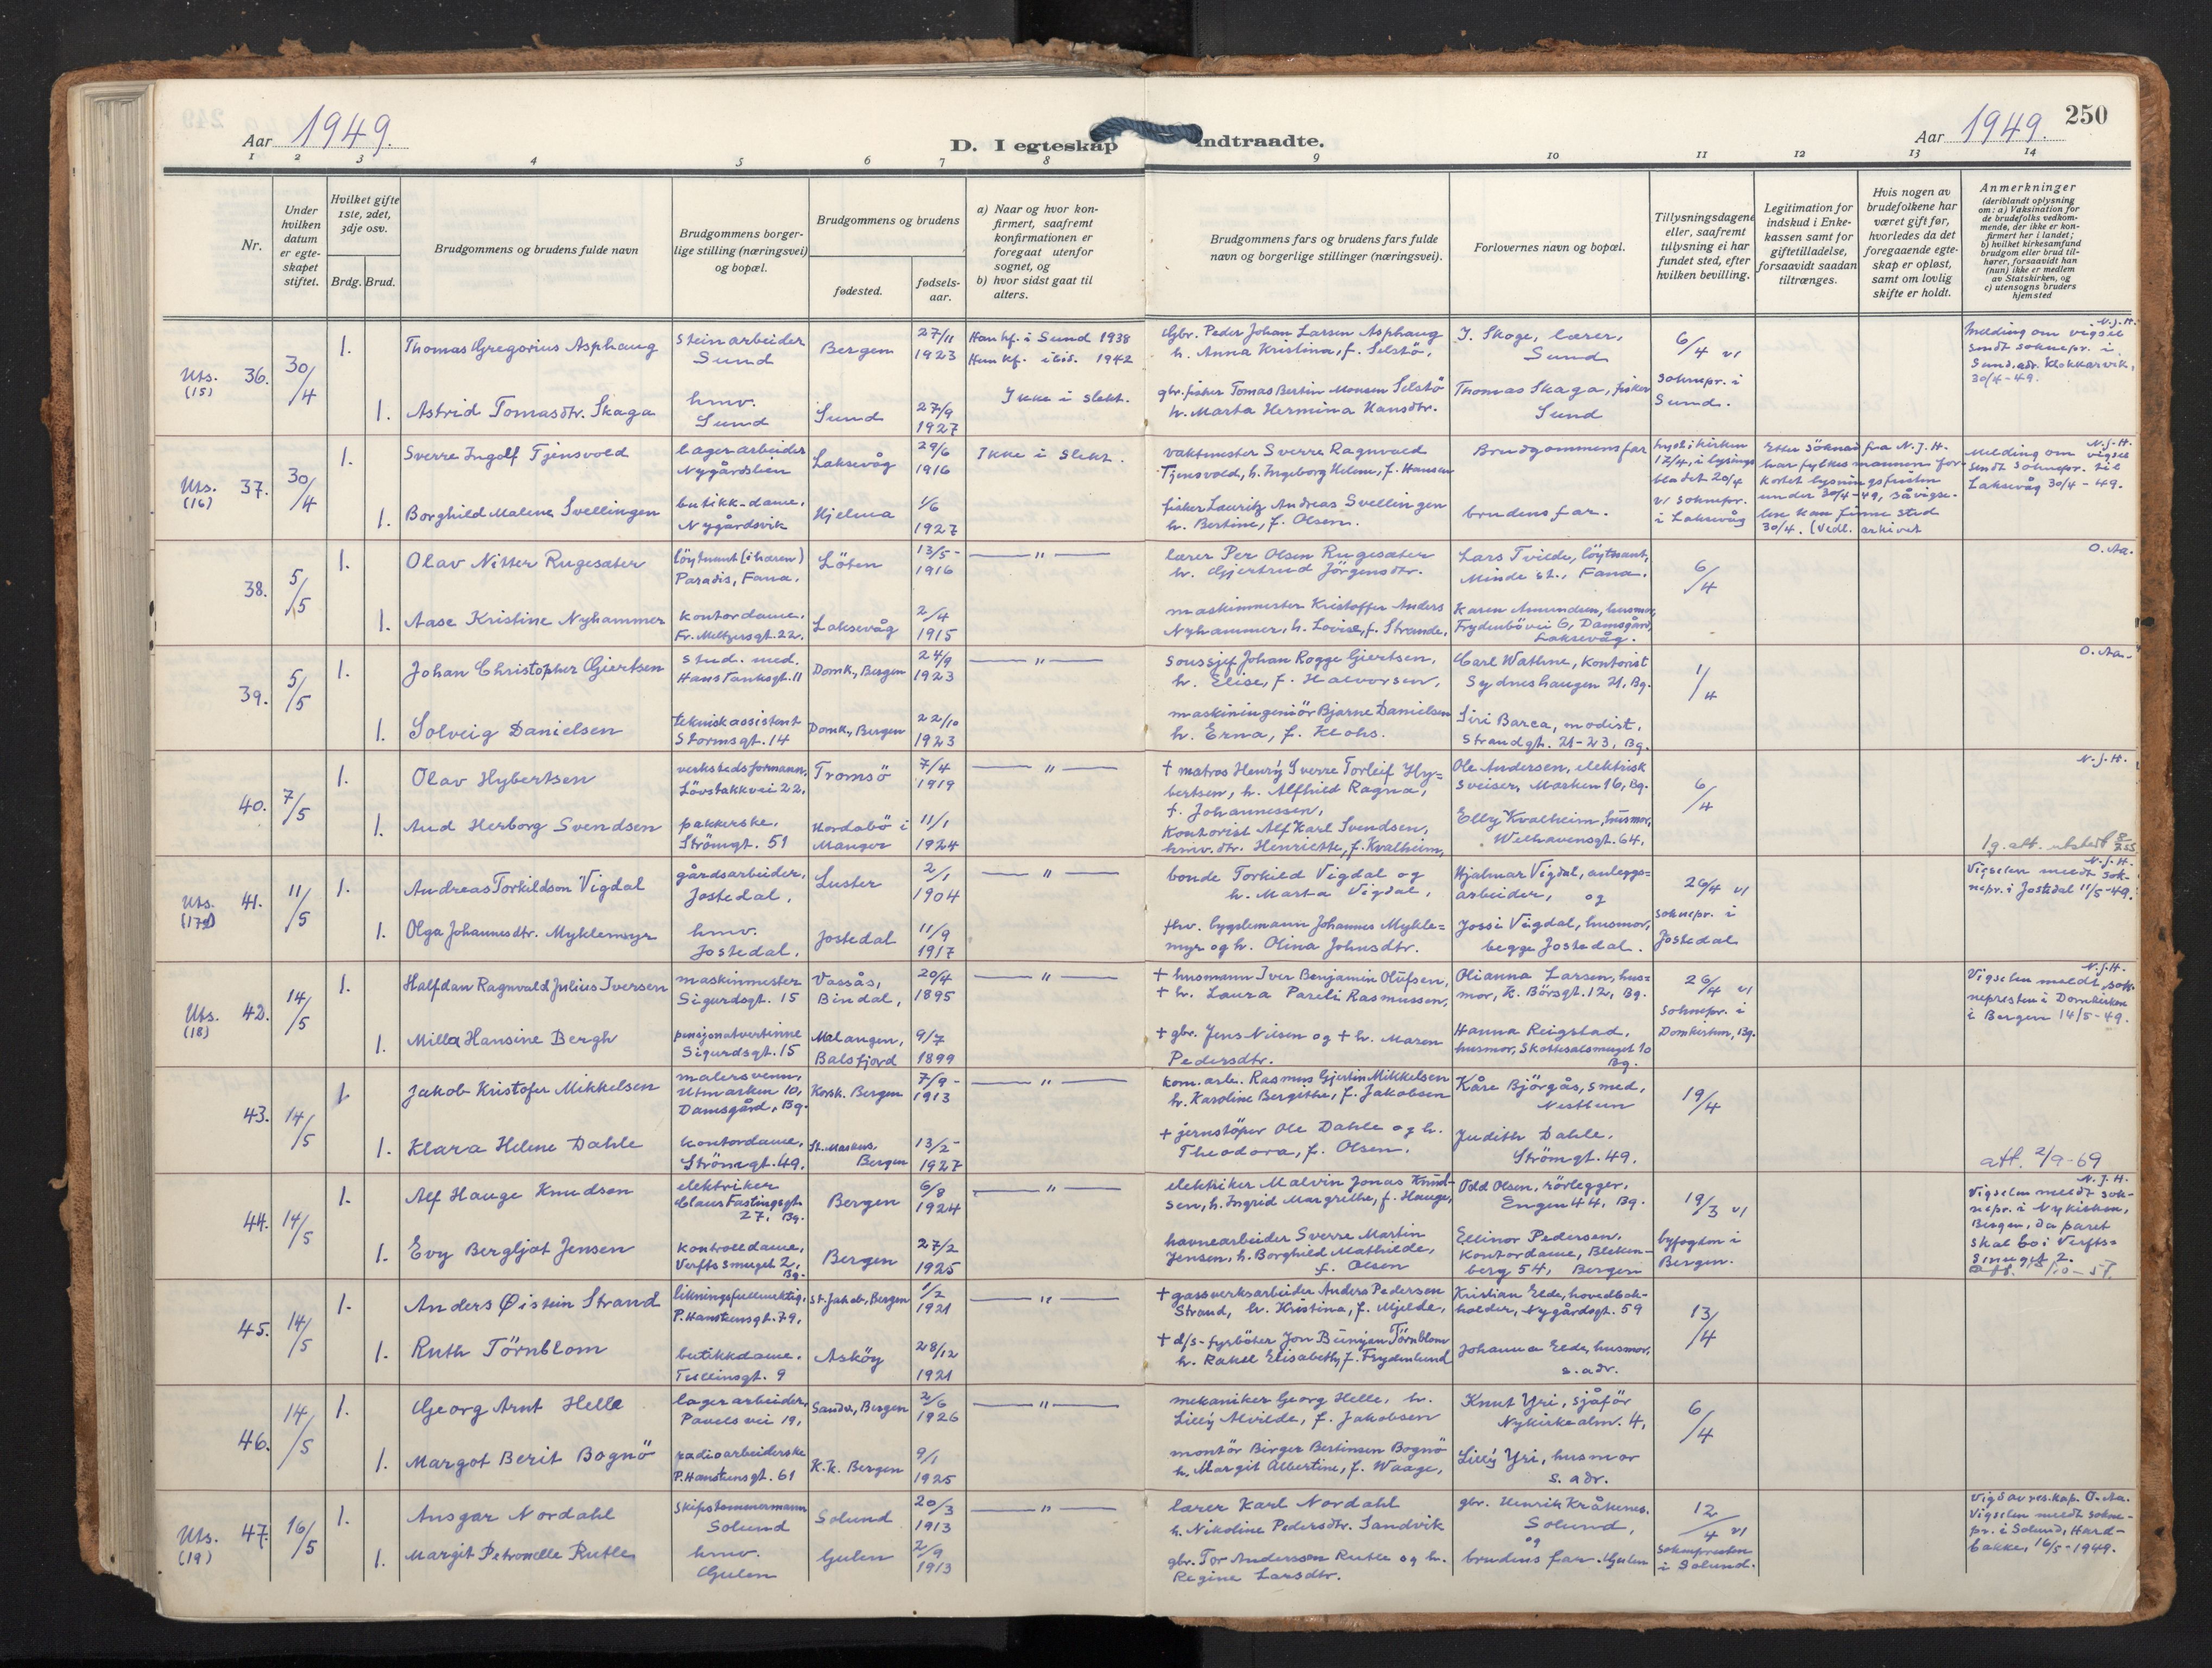 250
Aar 1949.
D. I egteskap indtraadte.
Aar 1949.
1 2 3 4 5 6 7 8 9 10 11 12 13 14
Nr.
Under hvilken datum er egteskapet stiftet.
Hvilket gifte 1ste, 2det, 3dje osv.
Brdg. Brud.
Brudgommens og brudens fulde navn
Brudgommens borgerlige stilling (næringsvei) og bopæl.
Brudgommens og brudens
fødested.
fødselsaar.
a) Naar og hvor konfirmert, saafremt konfirmationen er foregaat utenfor sognet, og
b) hvor sidst gaat til alters.
Brudgommens fars og brudens fars fulde navn og borgerlige stillinger (næringsvei).
Forlovernes navn og bopæl.
Tillysningsdagene eller, saafremt tillysning ei har fundet sted, efter hvilken bevilling.
Legitimation for indskud i Enkekassen samt for giftetilladelse, forsaavidt saadan tiltrænges.
Hvis nogen av brudefolkene har været gift før, hvorledes da det foregaaende egteskap er opløst, samt om lovlig skifte er holdt.
Anmerkninger
(deriblandt oplysning om: a) Vaksination for de brudefolks vedkommende, der ikke er konfirmert her i landet;
b) hvilket kirkesamfund brudgom eller brud tilhører, forsaavidt han (hun) ikke er medlem av Statskirken, og
c) utensogns bruders hjemsted
Uts. (15) 36. 30/4
1. Thomas Gregorius Asphaug
steinarbeider Sund
Bergen 27/11 1923
Han kf. i Sund 1938
Hun kf. ibid. 1942
Gbr. Peder Johan Larsen Asphaug
h. Anna Kristina, f. Selstø.
J. Skoge, lærer, Sund
6/4 v/ soknepr. i Sund.
N.J.H.
Melding om vigsel sendt soknepr. i Sund, adr. Klokkarvik, 30/4-49.
1. Astrid Tomasdtr. Skaga
hmv. Sund
Sund 27/9 1927
Ikke i slekt.
gbr. fisker Tomas Bertin Monsen Selstø
h. Marta Hermina Hansdtr.
Thomas Skaga, fisker Sund
Uts. (16) 37. 30/4
1. Sverre Ingolf Tjensvold
lagerarbeider Nygårdslien
Laksevåg 29/6 1916
Ikke i slekt.
vaktmester Sverre Ragnvald
Tjensvold, h. Ingeborg Helene, f. Hansen
Brudgommens far
lyst i kirken 17/4, i lysingsbladet 20/4 v/ soknepr. i Laksevåg
Etter söknad fra N.J.H. har fylkesmannen forkortet lysningsfristen under 30/4-49, så vigselen kan finne sted 30/4. (Vedl. arkivet
N.J.H.
Melding om vigsel sendt soknepr. til Laksevåg 30/4-49.
1. Borghild Malene Svellingen
butikk.dame, Nygårdsvik
Hjelma 1/6 1927
fisker Lauritz Andreas Svellingen
h. Bertine, f. Olsen.
brudens far.
38. 5/5
1. Olav Nitter Rugesæter
löytnant (i hæren) Paradis, Fana.
Löten 13/5- 1916
— " —
lærer Per Olsen Rugesæter
h. Gjertrud Jörgensdtr.
Lars Tvilde, löytnant, Minde st., Fana.
6/4
O. Aa.
1. Aase Kristine Nyhammer
kontordame. Fr. Meltzersgt. 22.
Laksevåg 2/4 1915
maskinmester Kristoffer Anders
Nyhammer, h. Lovise, f. Strande,
Karen Amundsen, husmor, Frydenbövei 6, Damsgård, Laksevåg.
39. 5/5
1. Johan Christopher Gjertsen
stud. med. Hans Tanksgt. 11
Domk., Bergen 24/9 1923
— " —
soussjef Johan Rogge Gjertsen,
h. Elise, f. Halvorsen,
Carl Wathne, kontorist Sydneshaugen 21, Bg.
1/4
O. Aa.
1. Solveig Danielsen
teknisk assistent Stormsgt. 14
Domk., Bergen 22/10 1923
maskiningeniör Bjarne Danielsen
h. Erna, f. Klohs.
Siri Barca, modist, Strandgt. 21-23, Bg.
40. 7/5
1. Olav Hybertsen
verkstedsformann, Lövstakkvei 22.
Tromsö 7/4 1919
— " —
+ matros Henry Sverre Torleif Hy=
bertsen, h. Alfhild Ragna,
f. Johannessen,
Ole Andersen, elektrisk sveiser, Marken 16, Bg.
6/4
N.J.H.
1. Aud Herborg Svendsen
pakkerske. Strömgt. 51
Hordabö i Manger 11/1 1924
Kontorist Alf Karl Svendsen,
hmv. dtr. Henriette, f. Kvalheim,
Elly Kvalheim, husmor, Welhavensgt. 64,
lg. att. utstedt
Uts. 41. 11/5
1. Andreas Torkildson Vigdal
gårdsarbeider, Jostedal.
Luster 2/1 1904
— " —
bonde Torkild Vigdal og
h. Marta Vigdal,
Hjalmar Vigdal, anleggsarbeider, og
26/4 v/ soknepr. i Jostedal
N.J.H.
Vigselen meldt soknepr. i Jostedal 11/5-49.
1. Olga Johannesdtr. Myklemyr
hmv. Jostedal.
Jostedal 11/9 1917
fhv. bygslemann Johannes Mykle=
myr og h. Olina Johnsdtr.
Jossi Vigdal, husmor, begge Jostedal.
Uts. (18) 42. 14/5
1. Halfdan Ragnvald Julius Iversen
maskinmester Sigurdsgt. 15
Vassås, Bindal, 20/4 1895
— " —
+ husmann Iver Benjamin Olufsen,
+ h. Laura Pareli Rasmussen,
Olianna Larsen, husmor, K. Börsgt. 12, Bg.
26/4 v/ soknepr. i Domkirken, Bg.
N.J.H.
Vigselen meldt soknepresten i Domkirken i Bergen 14/5-49.
1. Milla Hansine Bergh
pensjonatvertinne Sigurdsgt. 15
Malangen, Balsfjord 9/7 1899
+ gbr. Jens Nilsen og + h. Maren
Pedersdtr.
Hanna Reigstad, husmor, Skottesalsmuget 10 Bg.
43. 14/5
1. Jakob Kristofer Mikkelsen
malersvenn, Utmarken 10, Damsgård, Bg.
Korsk. Bergen 7/9- 1913
— " —
kom. arb. Rasmus Gjertin Mikkelsen
h. Karoline Bergithe, f. Jakobsen
Kåre Björgås, smed, Nesttun
19/4
1. Klara Helene Dahle
kontordame, Strömgt. 49.
St. Markus, Bergen 13/2- 1927
+ jernstöper Ole Dahle og h.
Theodora, f. Olsen.
Judith Dahle, Strömgt. 49.
att. 2/9-69
44. 14/5
1. Alf Hauge Knudsen
elektriker Claus Fastingsgt. 27, Bg.
Bergen 6/8 1924
— " —
elektriker Malvin Jonas Knud-
sen, h. Ingrid Margrethe, f. Hauge,
Odd Olsen, rörlegger, Engen 44, Bg.
19/3 v/ byfogden i Bergen.
N.J.H.
Vigselen meldt soknepr. i Nykirken, Bergen, da paret skal bo i Verftssmuget 2.
1. Evy Bergljot Jensen
kontrolldame, Verftssmuget 2, Bg.
Bergen 27/2 1925
havnearbeider Sverre Martin
Jensen, h. Borghild Mathilde,
f. Olsen
Ellinor Pedersen, kontordame, Blekenberg 54, Bergen
45. 14/5
1. Anders Øistein Strand
likningsfullmektig, P. Hanstensgt. 79,
St. Jakob, Bergen 1/2 1921
— " —
+ gassverksarbeider Anders Pedersen
Strand, h. Kristina, f. Mjelde,
Kristian Elde, hovedbokholder, Nygårdsgt. 59
13/4
1. Ruth Törnblom
butikkdame. Tullinsgt. 9
Asköy 28/12 1921
+ d/s-fyrböter Jon Bunjen Törnblom
h. Rakel Elisabeth, f. Frydenlund
Johanna Elde, husmor, s. adr.
46. 14/5
1. Georg Arnt Helle
lagerarbeider, Pavels vei 19,
Sandv., Bergen 2/6 1926
— " —
mekaniker Georg Helle, h.
Lilly Alvilde, f. Jakobsen
Knut Yri, sjåför Nykirkealm. 4,
6/4
1. Margot Berit Bognö
radioarbeiderske P. Hanstensgt. 61
K.k. Bergen 9/1 1925
montör Birger Bertinsen Bognö
h. Margit Albertine, f. Waage,
Lilly Yri, husmor s. adr.
Uts. (19) 47. 16/5
1. Ansgar Nordahl
skipstømmermann Solund
Solund 20/3 1913
— " —
lærer Karl Nordahl
h. Nikoline Pedersdtr. Sandvik
gbr. Henrik Kråkenes, Solund, og
12/4 v/ soknepresten i Solund.
Vigd av res. kap. O. Aa.
Vigselen meldt soknepr. i Solund, Hardbakke, 16/5-1949.
1. Margit Petronelle Rutle
hmv. Gulen
Gulen 2/9 1913
gbr. Tor Andersson Rutle og h.
Regine Larsdtr.
brudens far. Gulen